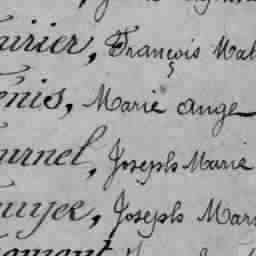 irier, François Mat
enis, Marie ange
urnel, Joseph Marie
uyer, Joseph Mar